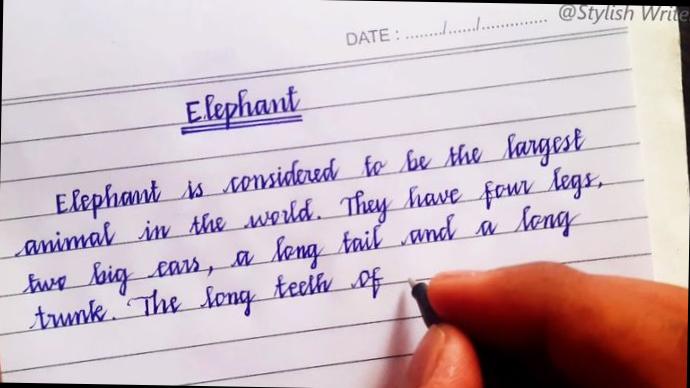 @Stylish Write
DATE : ......../....../...............
Elephant
Elephant is considered to be the largest
animal in the world. They have four legs,
two big ears, a long tail and a long
trunk. The long teeth of